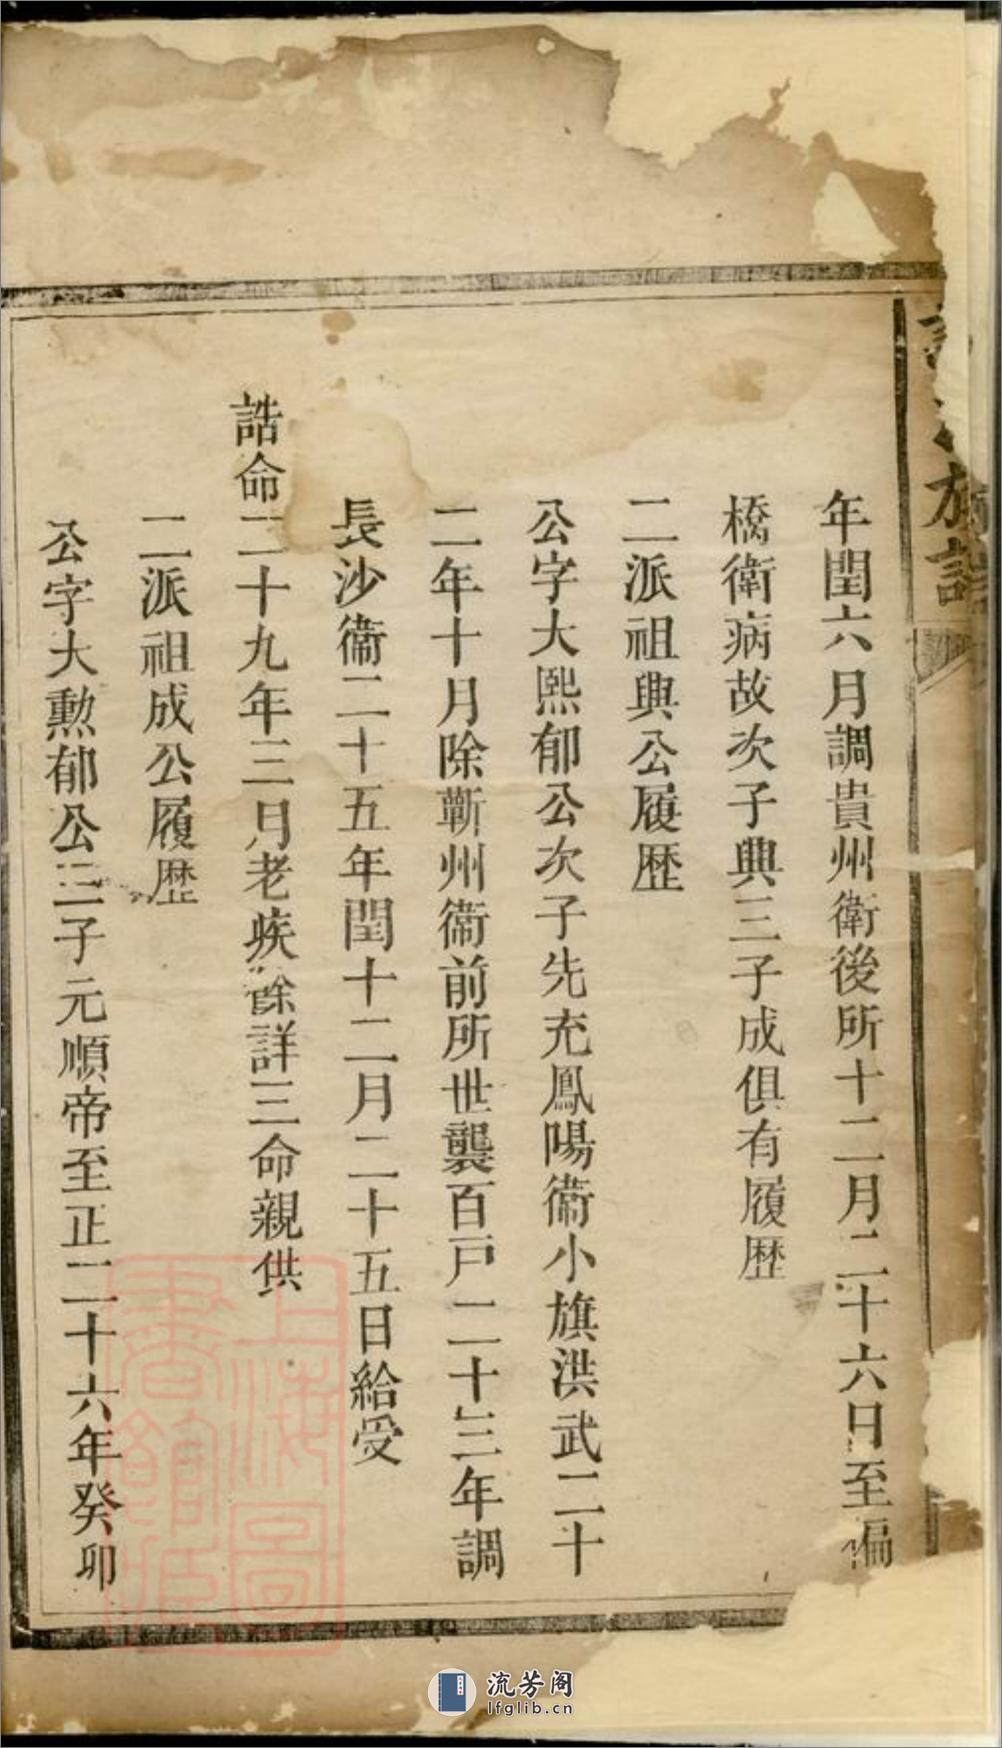 族譜
年閏六月調貴州衛後所十二月二十六日至偏
橋衛病故次子興三子成俱有履歷
二派祖興公履歷
公字大熙郁公次子先充鳳陽衛小旗洪武二十
二年十月除蘄州衛前所世襲百戶二十三年調
長沙衛二十五年閏十二月二十五日給受
誥命二十九年三月老疾餘詳三命親供
二派祖成公履歷
公字大勲郁公三子元順帝至正二十六年癸卯
上海圖
書館藏
流芳阁
lfglib.cn